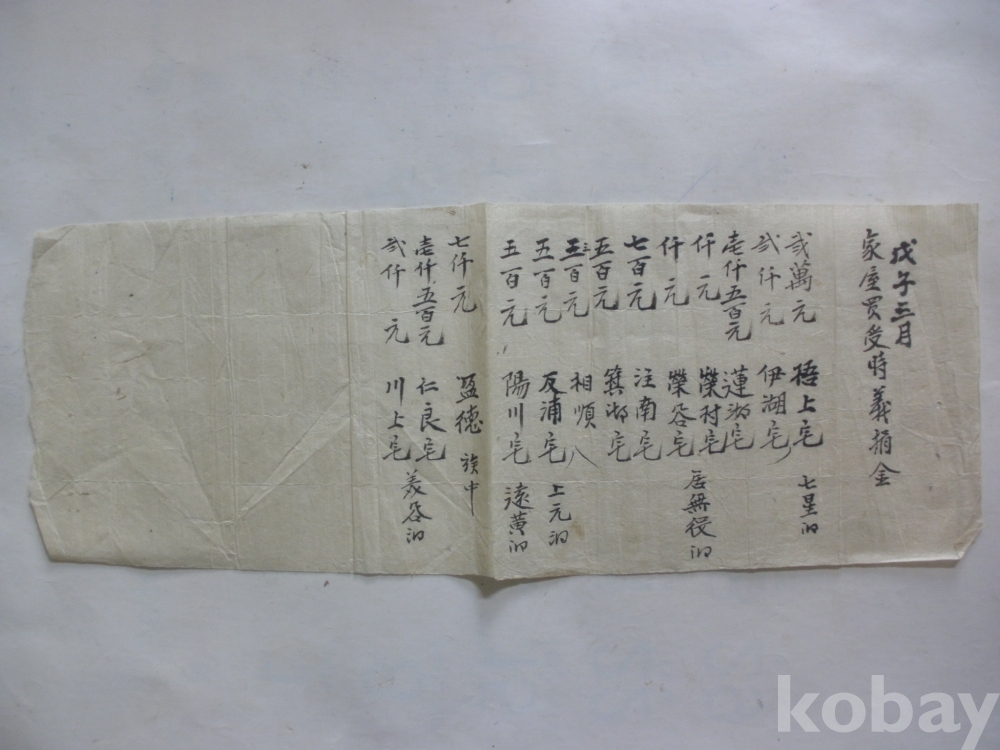 戊午三月
家屋買受時義捐金
弐萬元 梧上宅 七星洞
弐仟元 伊湖宅
壱仟五百元 蓮湖宅
仟元 榮村宅 居無役洞
仟元 榮谷宅
七百元 注南宅
五百元 箕湖宅
三百元 相順八
五百元 反浦宅 上元洞
五百元 陽川宅 遠黄洞
七仟元 盈德 族中
壱仟五百元 仁良宅
弐仟元 川上宅 美谷洞
kobay